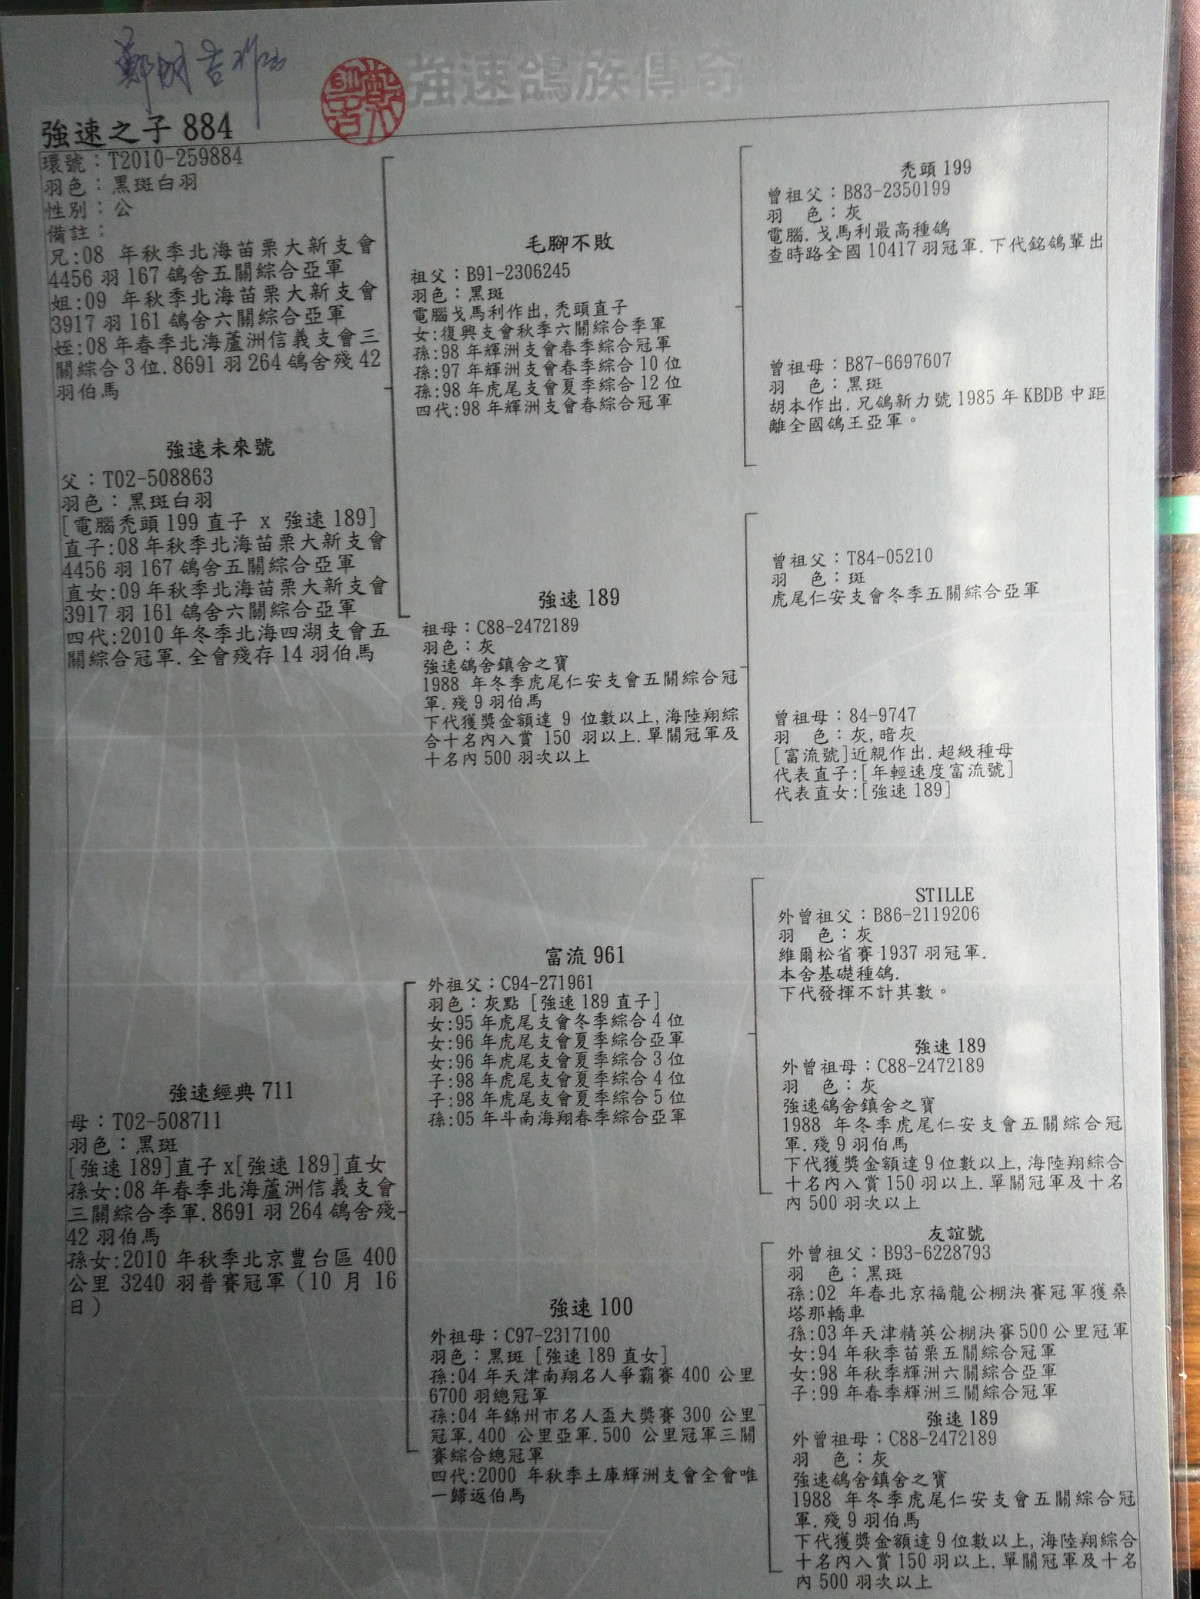 鄭明吉作出
強速鴿族傳奇
強速之子 884
環號：T2010-259884
羽色：黑斑白羽
性別：公
備註：
兄:08 年秋季北海苗栗大新支會
4456 羽 167 鴿舍五關綜合亞軍
姐:09 年秋季北海苗栗大新支會
3917 羽 161 鴿舍六關綜合亞軍
姪:08 年春季北海蘆洲信義支會三
關綜合 3 位.8691 羽 264 鴿舍殘 42
羽伯馬
強速未來號
父：T02-508863
羽色：黑斑白羽
[電腦禿頭 199 直子 x 強速 189]
直子:08 年秋季北海苗栗大新支會
4456 羽 167 鴿舍五關綜合亞軍
直女:09 年秋季北海苗栗大新支會
3917 羽 161 鴿舍六關綜合亞軍
四代:2010 年冬季北海四湖支會五
關綜合冠軍.全會殘存 14 羽伯馬
強速經典 711
母：T02-508711
羽色：黑斑
[強速 189]直子 x[強速 189]直女
孫女:08 年春季北海蘆洲信義支會
三關綜合季軍.8691 羽 264 鴿舍殘
42 羽伯馬
孫女:2010 年秋季北京豐台區 400
公里 3240 羽普賽冠軍（10 月 16
日）
毛腳不敗
祖父：B91-2306245
羽色：黑斑
電腦戈馬利作出,禿頭直子
女:復興支會秋季六關綜合季軍
孫:98 年輝洲支會春季綜合冠軍
孫:97 年輝洲支會春季綜合 10 位
孫:98 年虎尾支會夏季綜合 12 位
四代:98 年輝洲支會春綜合冠軍
強速 189
祖母：C88-2472189
羽色：灰
強速鴿舍鎮舍之寶
1988 年冬季虎尾仁安支會五關綜合冠
軍.殘 9 羽伯馬
下代獲獎金額達 9 位數以上,海陸翔綜
合十名內入賞 150 羽以上.單關冠軍及
十名內 500 羽次以上
富流 961
外祖父：C94-271961
羽色：灰點 [強速 189 直子]
女:95 年虎尾支會冬季綜合 4 位
女:96 年虎尾支會夏季綜合亞軍
女:96 年虎尾支會夏季綜合 3 位
子:98 年虎尾支會夏季綜合 4 位
子:98 年虎尾支會夏季綜合 5 位
孫:05 年斗南海翔春季綜合亞軍
強速 100
外祖母：C97-2317100
羽色：黑斑 [強速 189 直女]
孫:04 年天津南翔名人爭霸賽 400 公里
6700 羽總冠軍
孫:04 年錦州市名人盃大獎賽 300 公里
冠軍.400 公里亞軍.500 公里冠軍三關
賽綜合總冠軍
四代:2000 年秋季土庫輝洲支會全會唯
一歸返伯馬
禿頭 199
曾祖父：B83-2350199
羽 色：灰
電腦.戈馬利最高種鴿
查時路全國 10417 羽冠軍.下代銘鴿輩出
曾祖母：B87-6697607
羽 色：黑斑
胡本作出.兄鴿新力號 1985 年 KBDB 中距
離全國鴿王亞軍。
曾祖父：T84-05210
羽 色：斑
虎尾仁安支會冬季五關綜合亞軍
曾祖母：84-9747
羽 色：灰,暗灰
[富流號]近親作出.超級種母
代表直子:[年輕速度富流號]
代表直女:[強速 189]
STILLE
外曾祖父：B86-2119206
羽 色：灰
維爾松省賽 1937 羽冠軍.
本舍基礎種鴿.
下代發揮不計其數。
強速 189
外曾祖母：C88-2472189
羽 色：灰
強速鴿舍鎮舍之寶
1988 年冬季虎尾仁安支會五關綜合冠
軍.殘 9 羽伯馬
下代獲獎金額達 9 位數以上,海陸翔綜合
十名內入賞 150 羽以上.單關冠軍及十名
內 500 羽次以上
友誼號
外曾祖父：B93-6228793
羽 色：黑斑
孫:02 年春北京福龍公棚決賽冠軍獲桑
塔那轎車
孫:03 年天津精英公棚決賽 500 公里冠軍
女:94 年秋季苗栗五關綜合冠軍
女:98 年秋季輝洲六關綜合亞軍
子:99 年春季輝洲三關綜合冠軍
強速 189
外曾祖母：C88-2472189
羽 色：灰
強速鴿舍鎮舍之寶
1988 年冬季虎尾仁安支會五關綜合冠
軍.殘 9 羽伯馬
下代獲獎金額達 9 位數以上,海陸翔綜合
十名內入賞 150 羽以上.單關冠軍及十名
內 500 羽次以上